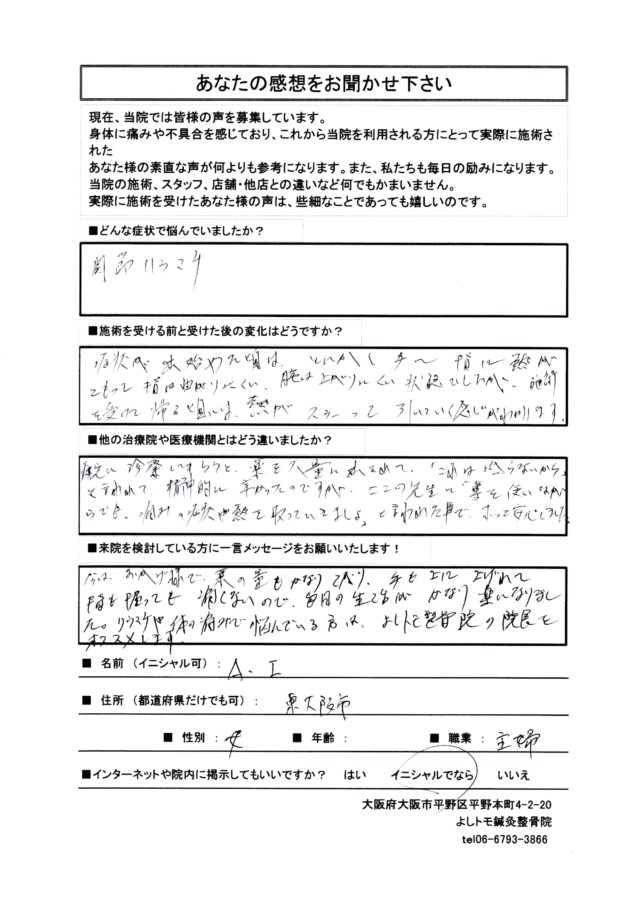 あなたの感想をお聞かせ下さい
現在、当院では皆様の声を募集しています。
身体に痛みや不具合を感じており、これから当院を利用される方にとって実際に施術さ
れた
あなた様の素直な声が何よりも参考になります。また、私たちも毎日の励みになります。
当院の施術、スタッフ、店舗・他店との違いなど何でもかまいません。
実際に施術を受けたあなた様の声は、些細なことであっても嬉しいのです。
■どんな症状で悩んでいましたか？
関節リウマチ
■施術を受ける前と受けた後の変化はどうですか？
症状が出始めた頃は、とにかく手や指に熱が
こもって指は曲がりにくい、腕は上がりにくい状態でしたが、施術
を受けて帰る頃には、熱がスーって引いていく感じがわかります。
■他の治療院や医療機関とはどう違いましたか？
病院に診察してもらうと、薬を大量に出されて、「これは治らないから」
と言われて、精神的に辛かったのですが、ここの先生は「薬を使いなが
らでも、痛みの症状や熱を取っていきましょ」と言われた事で、ホッと安心しました
■来院を検討している方に一言メッセージをお願いいたします！
今は、おかげ様で、薬の量もかなり減り、手も上に上げれて
指を握っても痛くないので、毎日の生活がかなり楽になりまし
た。リウマチや体の痛みで悩んでいる方は、よしトモ整骨院の院長を
オススメします。
■ 名前（イニシャル可）： A．I
■ 住所（都道府県だけでも可）： 東大阪市
■ 性別： 女 ■ 年齢： ■ 職業： 主婦
■インターネットや院内に掲示してもいいですか？ はい イニシャルでなら いいえ
大阪府大阪市平野区平野本町4-2-20
よしトモ鍼灸整骨院
tel06-6793-3866